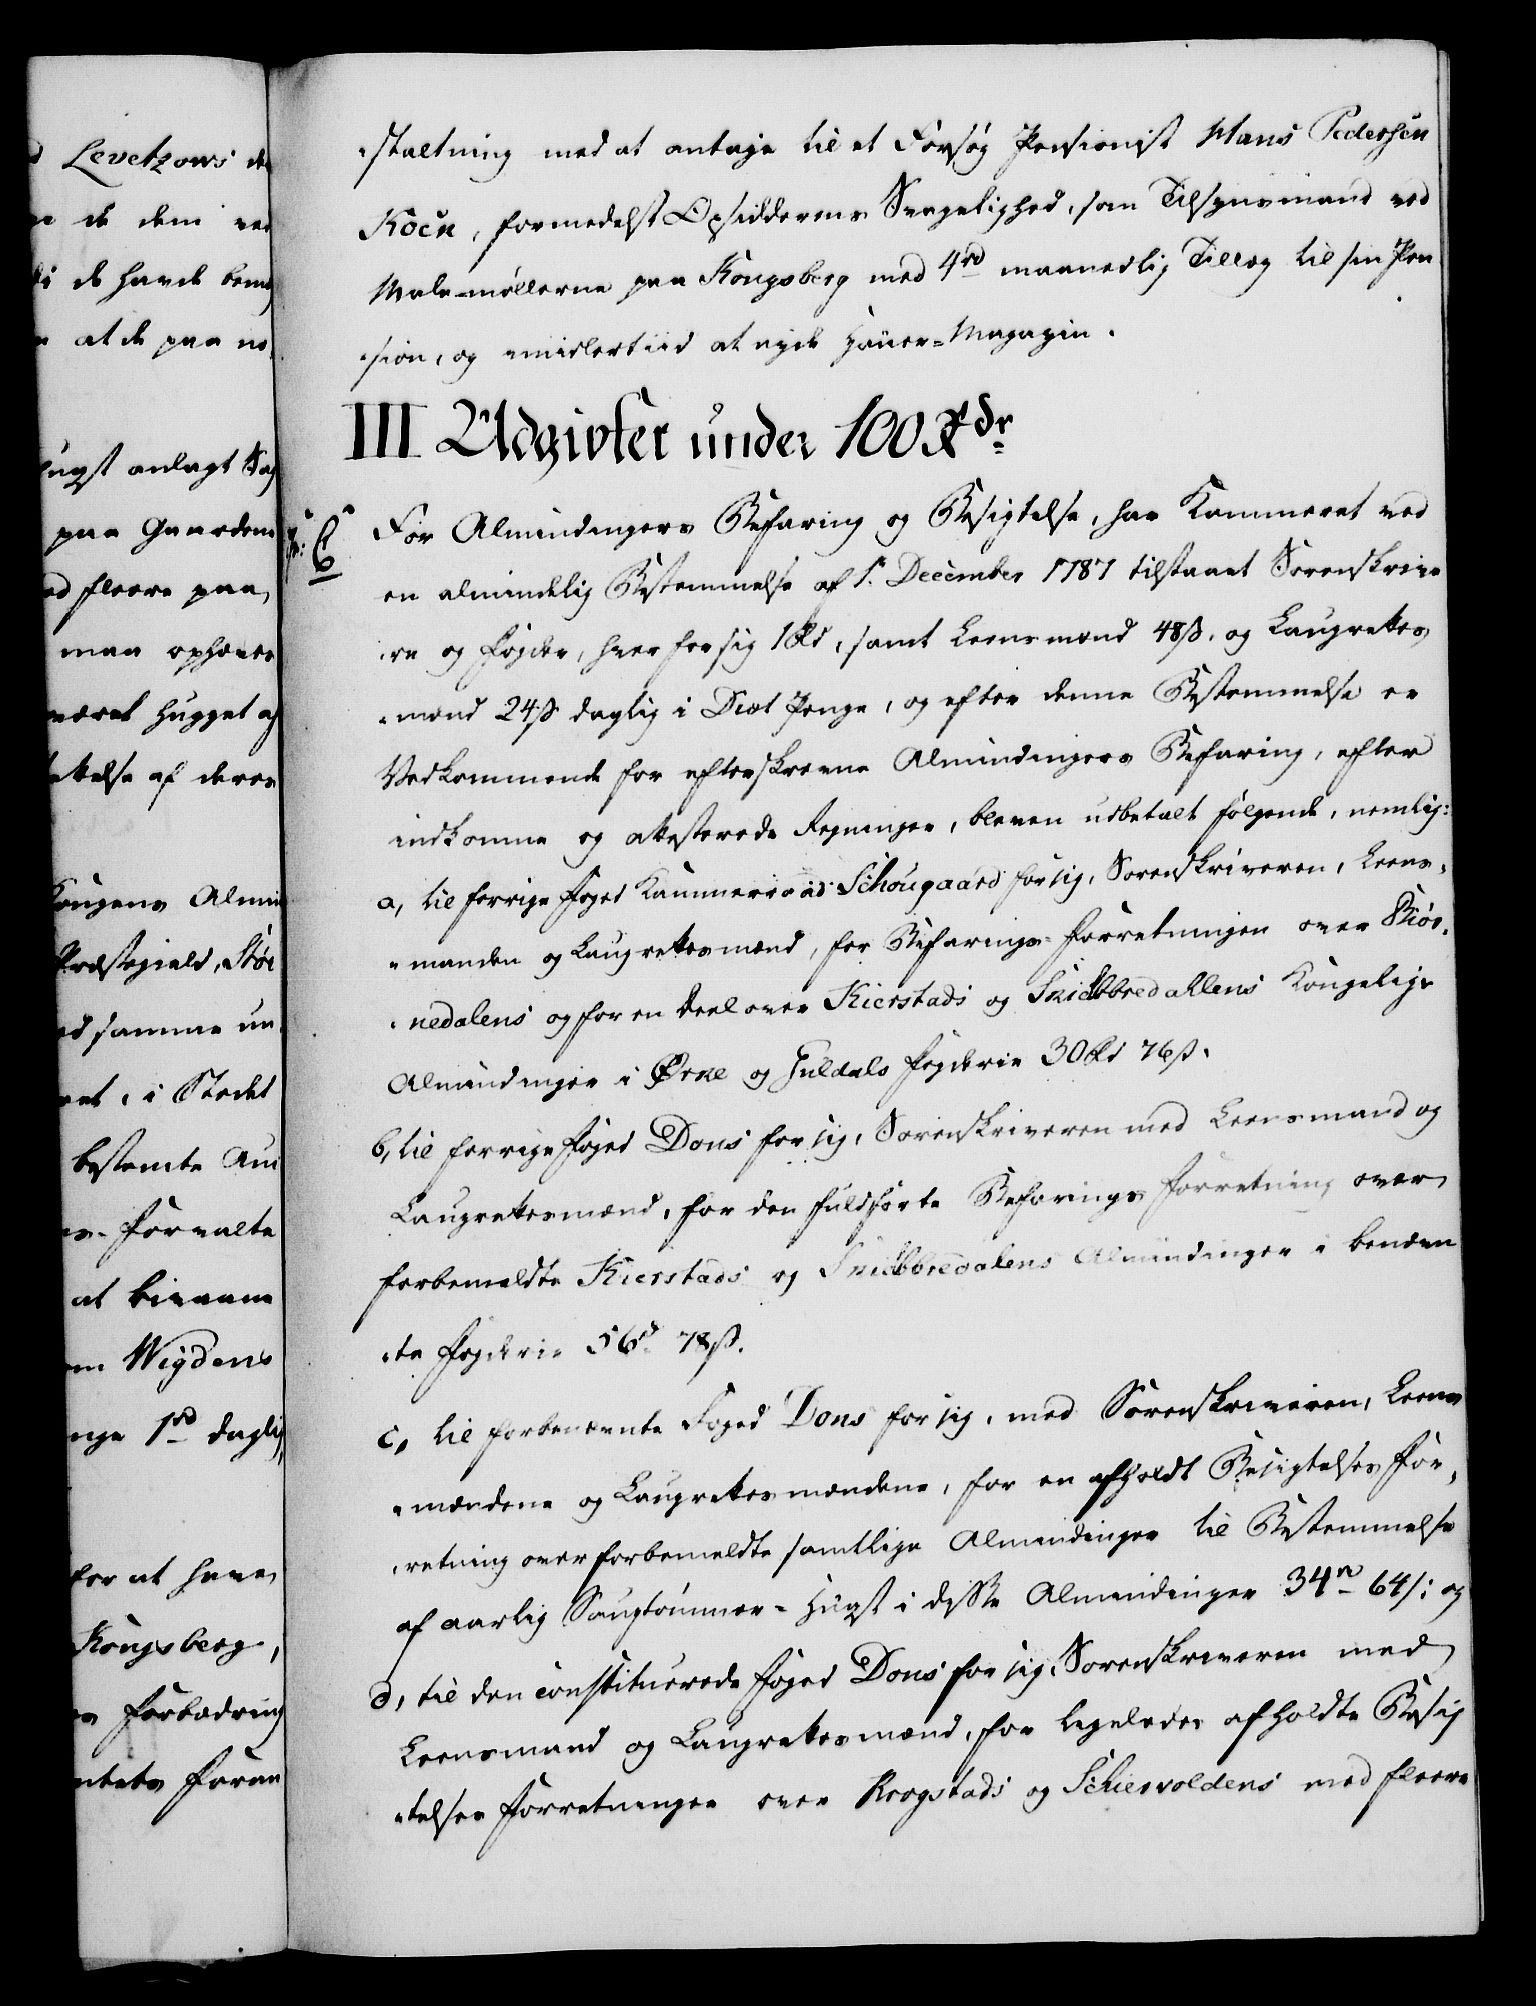 Levetzows de
de dem ved
i de havde bem
at de paa no
hugst anlagt Sag
paa Gaardene
fleere paa,
man ophæver
været hugget af
af deres
Kongens Almin
Præstegield, Stör
samme un
i Stedet
bestemte Aui
forvalte
at
Wigdens
1rd daglig
for at have
Kongsberg,
forbædring
foran
staltning med at antage til et Forsøg Pensionist Hans Pedersen
Koch, formedelst Opsidderens Svagelighed, som Tilsynsmand ved
Male-møllerne paa Kongsberg med 4rd maanedlig Tillæg til sin Pen
sion, og imidlertiid at nyde Hauer-Magazin.
III Udgivter under 100 Rdr
6 For Almindingers Befaring og Besigtelse, har Kammeret ved
en almindelig Bestemmelse af 1. December 1787 tilstaaet Sorenskrive
re og Fogder, hver for sig 1 Rd, samt Leensmænd 48ß. og Laugrettes
mænd 24ß daglig i Diæt Penge, og efter denne Bestemmelse er
Vedkommende for efterskrevne Almindingers Befaring, efter
indkomne og attesterede Regninger, bleven udbetalt følgende, nemlig:
a, til forrige Foged Kammerraad Schougaard for sig, Sorenskriveren, Leens
manden og Laugrettesmænd, for Befarings-Forretningen over Biør
nedalens og for en Deel over Kierstads og Snidbbredahlens Kongelige
Almindinger i Ørke og Guldals Fogderie 30 Rd 76ß.
b, til forrige Foged Dons for sig, Sorenskriveren med Leensmand og
Laugrettesmænd, for den fuldførte Befarings Forretning over
forbemeldte Kierstads og Snidbbredalens Almindinger i benævn
te Fogderie 56rd 78ß.
c, til forbenævnte Foged Dons for sig, med Sorenskriveren, Leens
mændene og Laugrettesmændene, for en afholdt Besigtelses For
retning over forbemeldte samtlige Almindinger til Bestemmelse
af aarlig Saugtømmer-Hugst i disse Almindinger 34rd 64ß: og
d, til den constituerede Foged Dons for sig, Sorenskriveren med
Leensmand og Laugrettesmænd, for ligeledes afholdte Besig
telses Forretninger over Rogstads og Schiervoldens med fleere